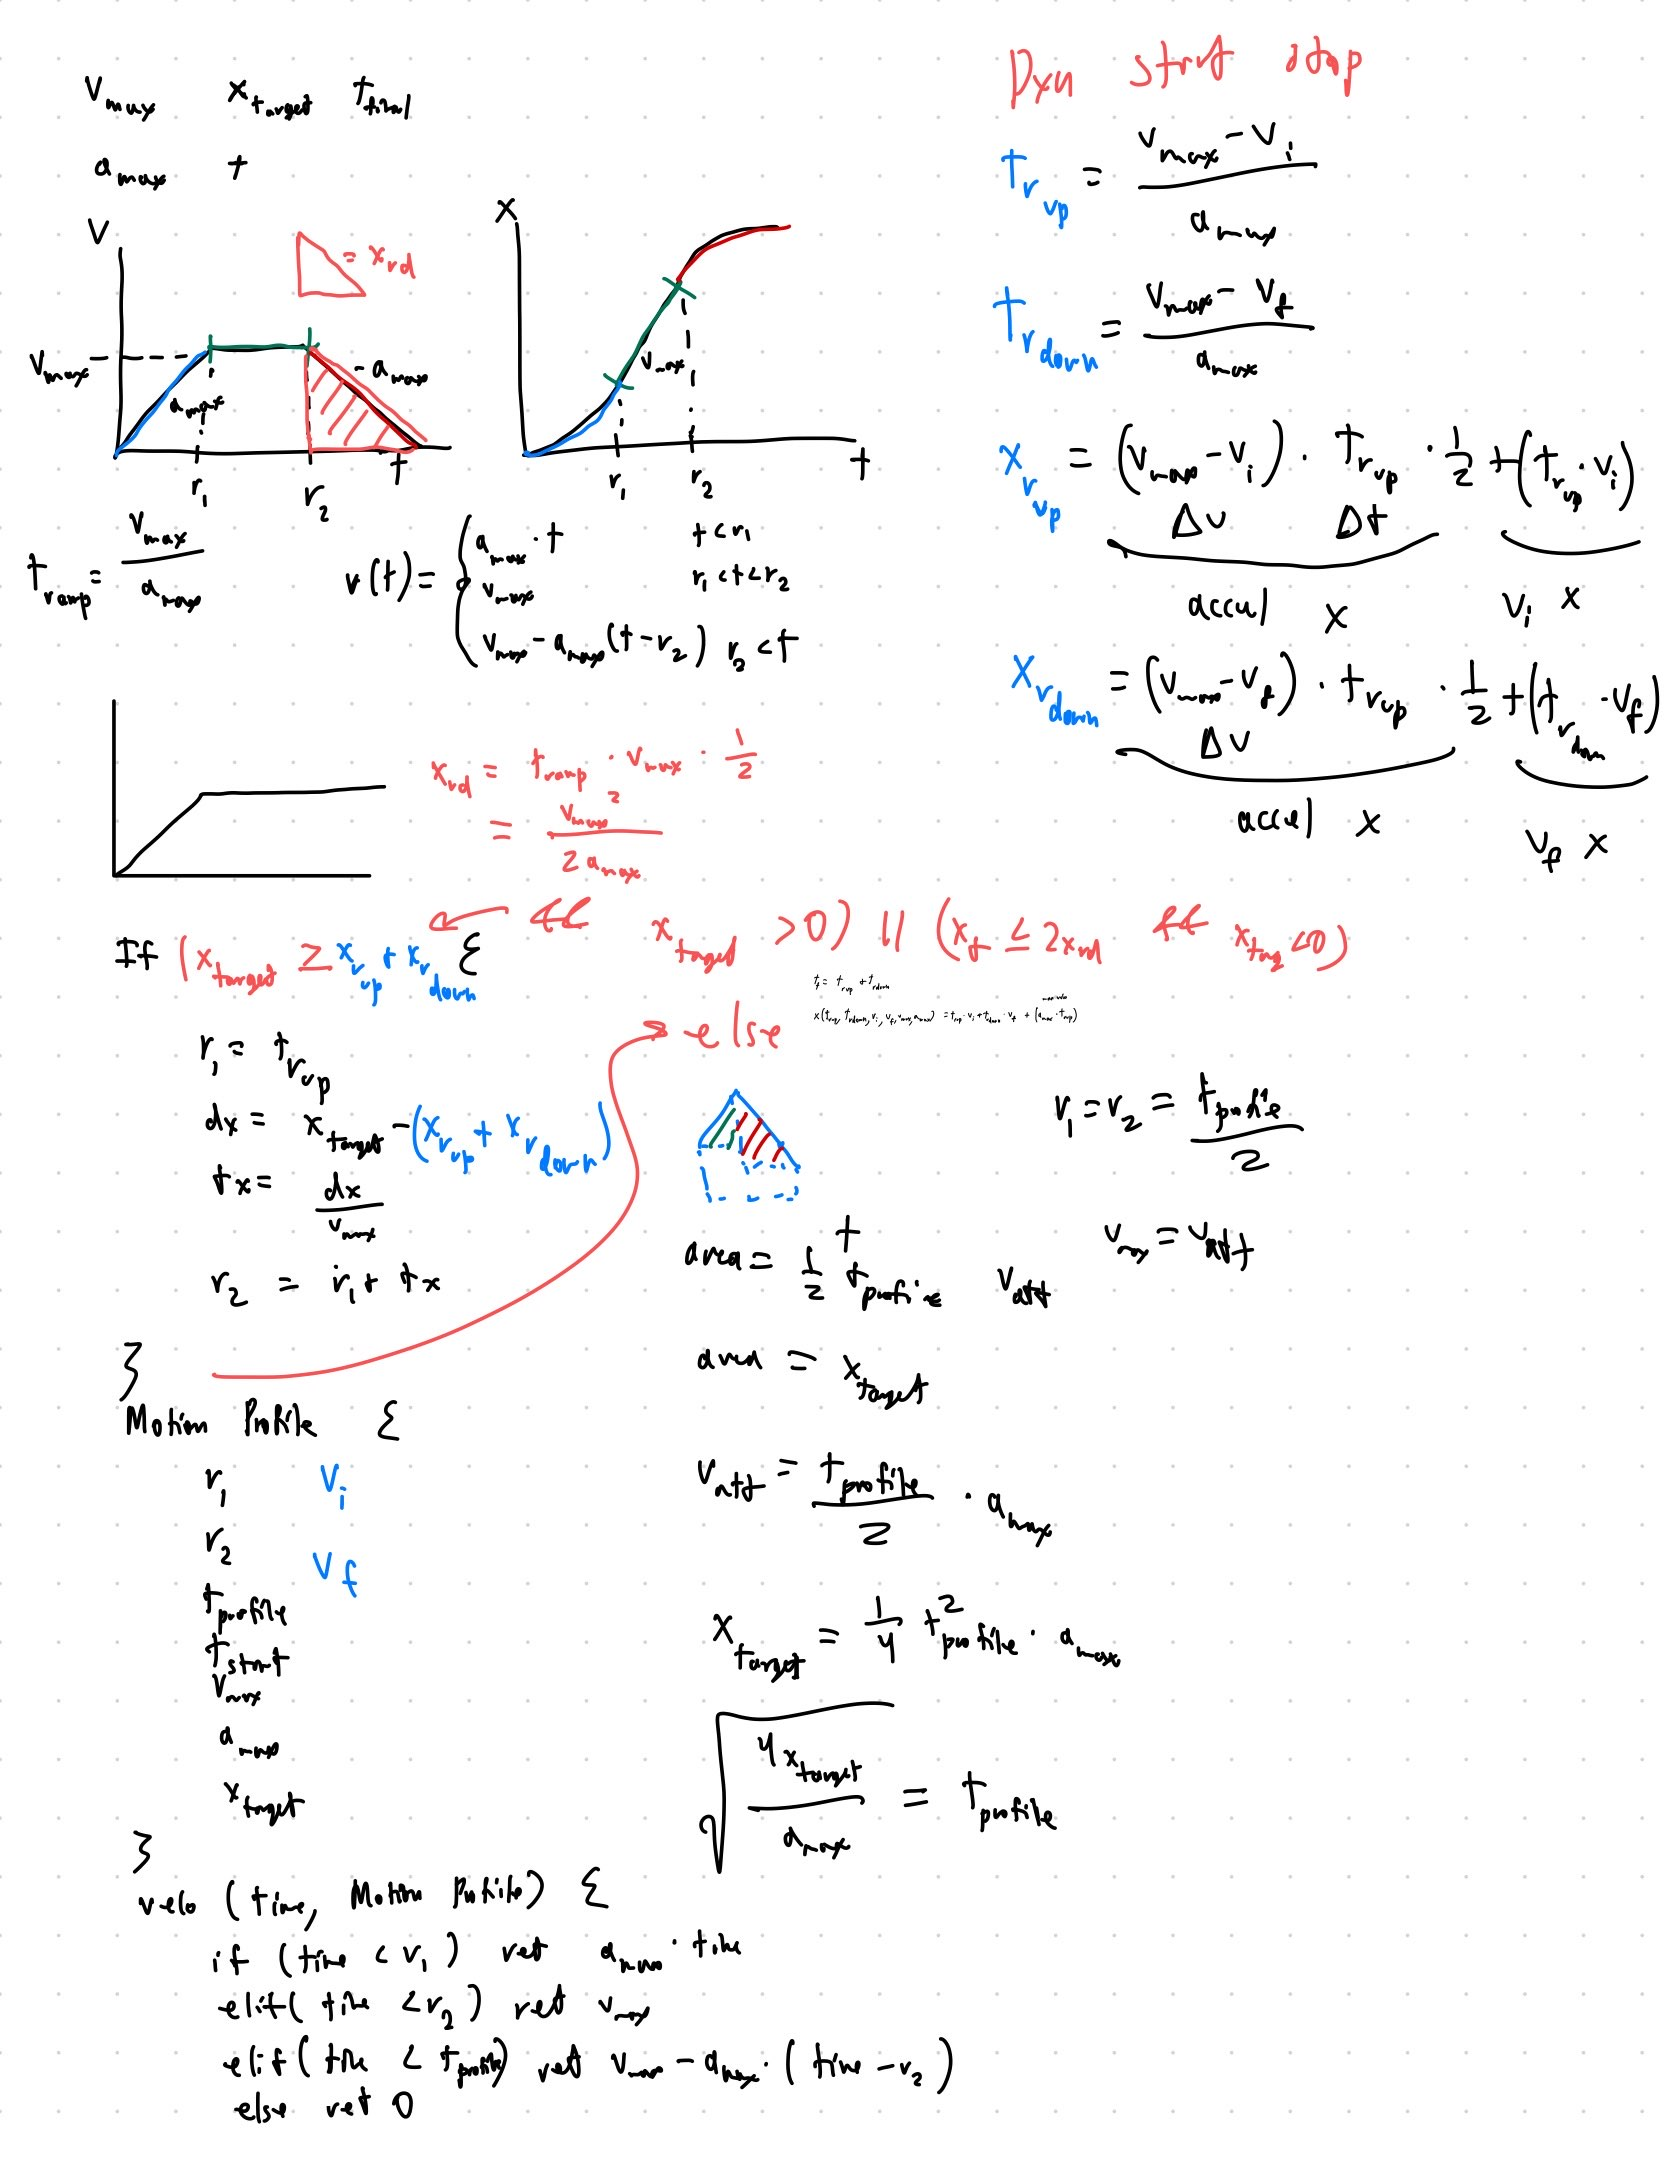 V_max x_target t_final
a_max t
V
= x_rd
V_max
a_max
- a_max
r_1
r_2
t
X
v_max
r_1
r_2
t
t_ramp = v_max / a_max
v(t) = { a_max · t t < r_1
v_max r_1 < t < r_2
v_max - a_max (t - r_2) r_2 < t
x_rd = t_ramp · v_max · 1/2
= v_max^2 / 2 a_max
Dyn strt stop
t_r_up = v_max - v_i / a_max
t_r_down = v_max - v_f / a_max
x_r_up = (v_max - v_i) · t_r_up · 1/2 + (t_r_up · v_i)
Δv Δt
accel x v_i x
x_r_down = (v_max - v_f) · t_r_up · 1/2 + (t_r_down · v_f)
Δv
accel x v_f x
If (x_target ≥ x_r_up + x_r_down { ← && x_target > 0) || (x_t ≤ 2x_rd && x_targ < 0)
t_f = t_rup + t_rdown
r_1 = t_r_up
dx = x_target - (x_r_up + x_r_down)
tx = dx / v_max
r_2 = r_1 + tx
}
→ else
r_1 = r_2 = t_profile / 2
v_max = v_att
t
area = 1/2 t_profile v_att
area = x_target
v_att = t_profile / 2 · a_max
x_target = 1/4 t^2_profile · a_max
√(4 x_target / a_max) = t_profile
Motion Profile {
r_1 v_i
r_2 v_f
t_profile
t_start
v_max
a_max
x_target
}
velo (time, Motion Profile) {
if (time < r_1) ret a_max · time
elif (time < r_2) ret v_max
elif (time < t_profile) ret v_max - a_max · (time - r_2)
else ret 0